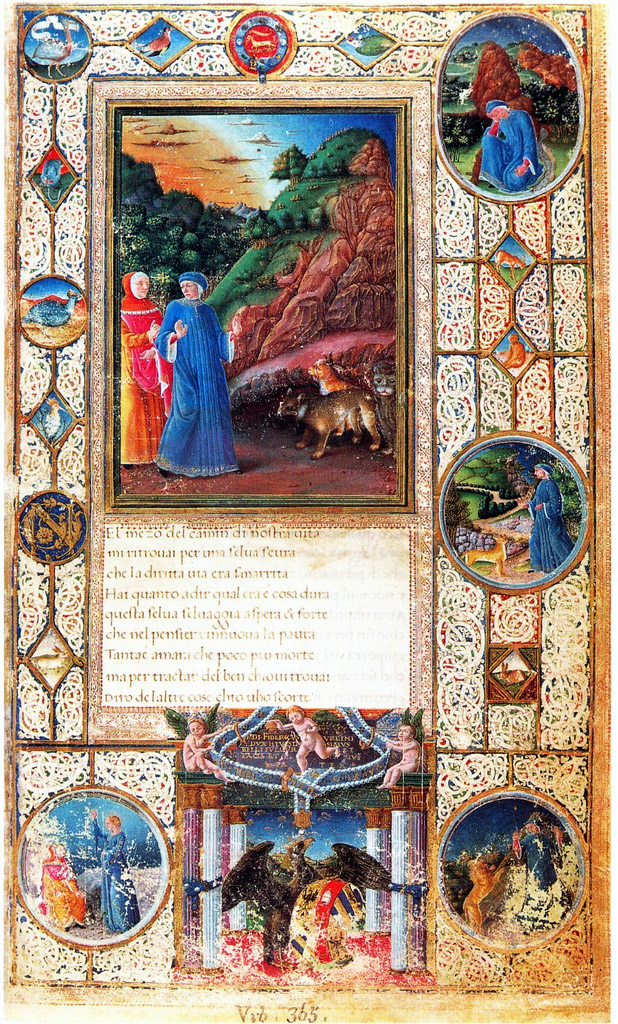 El mezo del camin di nostra uita
mi ritrouai per una selua scura
che la dirita uia era smarrita
Hai quanto adir qual era e cosa dura
questa selua seluaggia aspera & forte
che nel pensier rinuoua la paura
Tantae amara che poco piu morte
ma per tractar del ben chiui trouai
Diro delaltre cose chio uho scorte
VRBIN
DVX
Vrb. 365.